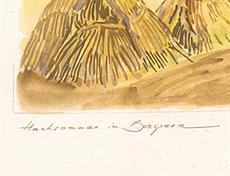 Hochsommer in Bayern